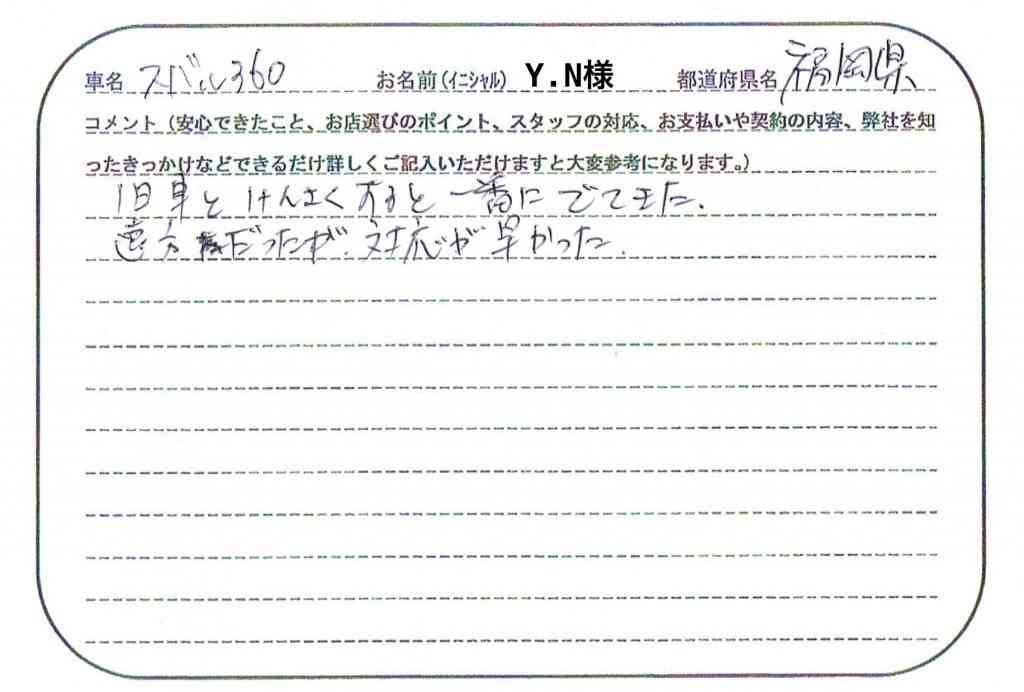 車名 スバル360 お名前(イニシャル) Y.N様 都道府県名 福岡県
コメント（安心できたこと、お店選びのポイント、スタッフの対応、お支払いや契約の内容、弊社を知
ったきっかけなどできるだけ詳しくご記入いただけますと大変参考になります。）
旧車とけんさくすると一番にでてきた。
遠方だったが、対応が早かった。